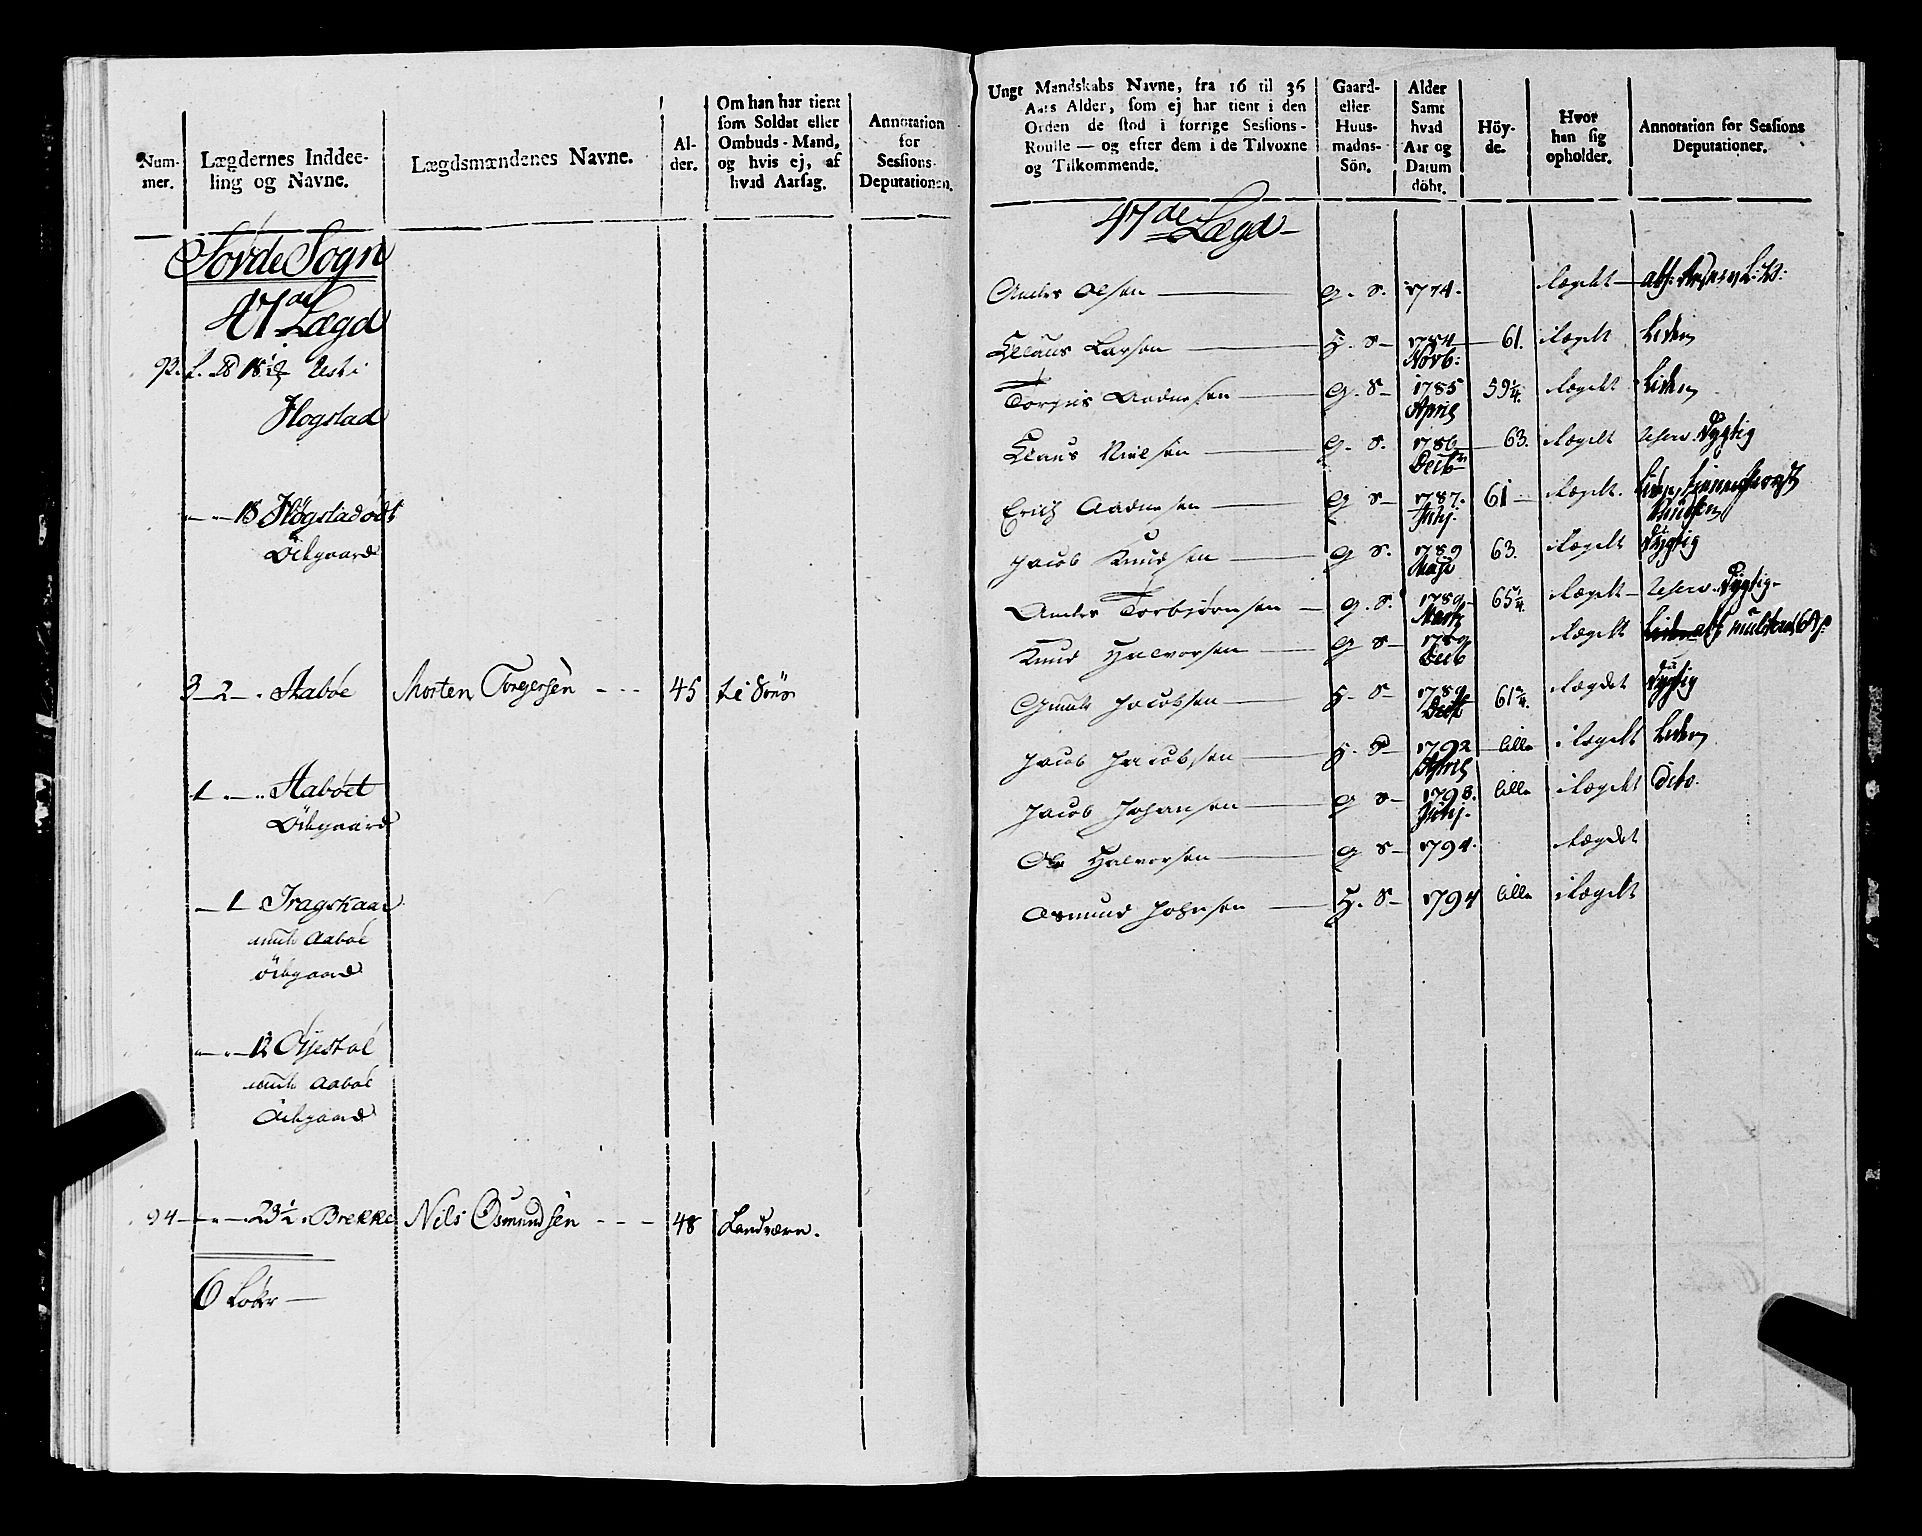 Num-
mer.
Lægdernes Inddee-
ling og Navne.
Lægdsmændenes Navne.
Al-
der.
Om han har tient
som Soldat eller
Ombuds-Mand,
og hvis ej, af
hvad Aarsag.
Annotation
for
Sessions-
Deputationen.
Sövde Sogn
47de Lægd
Hogstad
15 Hogstad ödt
Ödegaard
3 2 Aaböe Morten Torgersen 45
1 Aaböet
Ödegaard
1 Tragskaar
Aaböe
Ödegaard
12 Öjestöl
Aaböe
Ödegaard
94 23½ Brekke Nils Osmundsen 48 Landværn.
6
Ungt Mandskabs Navne, fra 16 til 36
Aars Alder, som ej har tient i den
Orden de stod i forrige Sessions-
Roulle — og efter dem i de Tilvoxne
og Tilkommende.
Gaard-
eller
Huus-
mands-
Sön.
Alder
Samt
hvad
Aar og
Datum
döbt.
Höy-
de.
Hvor
han sig
opholder.
Annotation for Sessions
Deputationer.
47de Lægd
Anders Olsen G. S. 1774. Lægdet
Claus Larsen H. S. 1784 Novb: 61. i Lægdt Liden
Torgius Aadnesen G. S. 1785 April 59¼. Lægdet Liden
Claus Nielsen G. S. 1786 Decb 63. Lægdt Dygtig
Erich Aadnesen G S 1787. Junj. 61 Lægdt.
Jacob Knudsen G S. 1789 Maji 63. i Lægdt Dygtig
Anders Torbjörnsen G. S. 1789 Martz 65¼. Lægdt Dygtig
Knud Halvorsen G S 1789 Decb Lægdt
Jacobsen H. S 1789 Decb 61¾. Lægdet Dygtig
Jacob Jacobsen H. S 1792 April lille i Lægdt Liden
Jacob Johansen G S 1793. Junj. lille i Lægdt Dito.
Ole Halvorsen G S 1794. Lægdet
Osmund Johnsen H. S 1794 lille i Lægdt